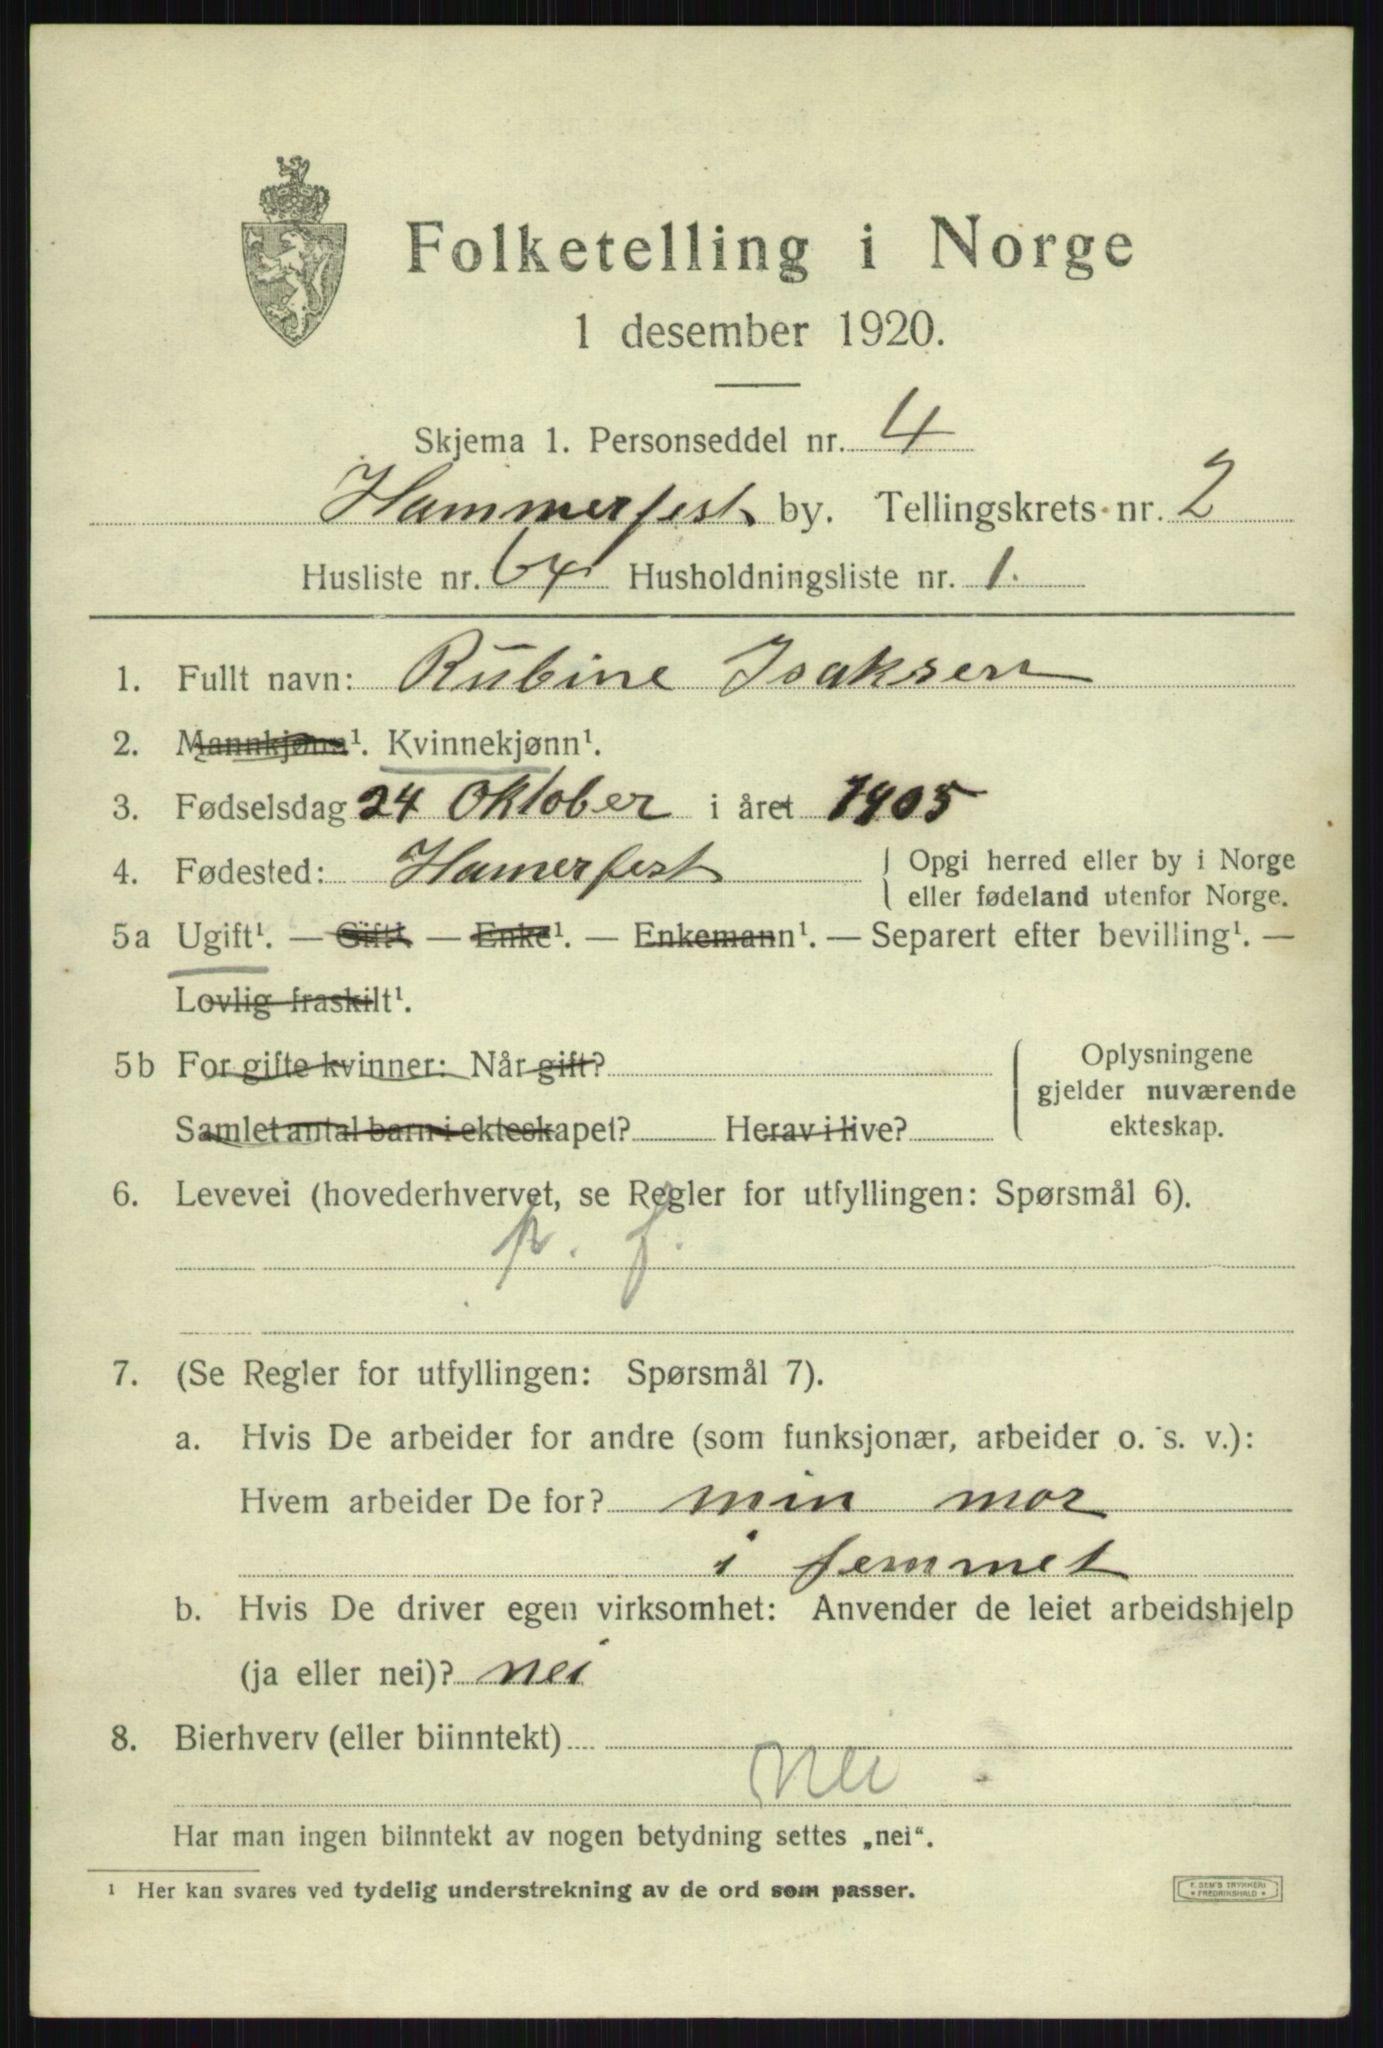 Folketelling i Norge
1 desember 1920.
Skjema 1. Personseddel nr. 4
Hammerfest by. Tellingskrets nr. 2
Husliste nr. 64 Husholdningsliste nr. 1.
1. Fullt navn: Rubine Isaksen
2. Mannkjønn¹. Kvinnekjønn¹.
3. Fødselsdag 24 Oktober i året 1905
4. Fødested: Hamerfest { Opgi herred eller by i Norge
eller fødeland utenfor Norge.
5a Ugift¹. — Gift¹ — Enke¹. — Enkemann¹. — Separert efter bevilling¹. —
Lovlig fraskilt¹.
5b For gifte kvinner: Når gift? { Oplysningene
gjelder nuværende
Samlet antal barn i ekteskapet? Herav i live? ekteskap.
6. Levevei (hovederhvervet, se Regler for utfyllingen: Spørsmål 6).
p. f.
7. (Se Regler for utfyllingen: Spørsmål 7).
a. Hvis De arbeider for andre (som funksjonær, arbeider o. s. v.):
Hvem arbeider De for? min mor
i jemmet
b. Hvis De driver egen virksomhet: Anvender de leiet arbeidshjelp
(ja eller nei)? nei
8. Bierhverv (eller biinntekt)
Nei
Har man ingen biinntekt av nogen betydning settes „nei“.
¹ Her kan svares ved tydelig understrekning av de ord som passer.
E. SEM'S TRYKKERI
* FREDRIKSHALD *